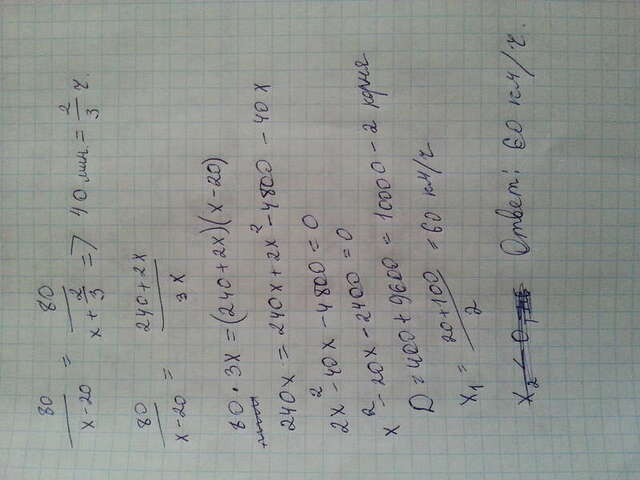 80/(x-20) = 80/(x+2/3) => 40 мин. = 2/3 ч.
80/(x-20) = (240+2x)/(3x)
80·3x=(240+2x)(x-20)
240x = 240x+2x²-4800-40x
2x²-40x-4800=0
x²-20x-2400=0
D=400+9600=10000-2 корня
x₁ = (20+100)/2 = 60 км/ч
x₂<0
Ответ: 60 км/ч.